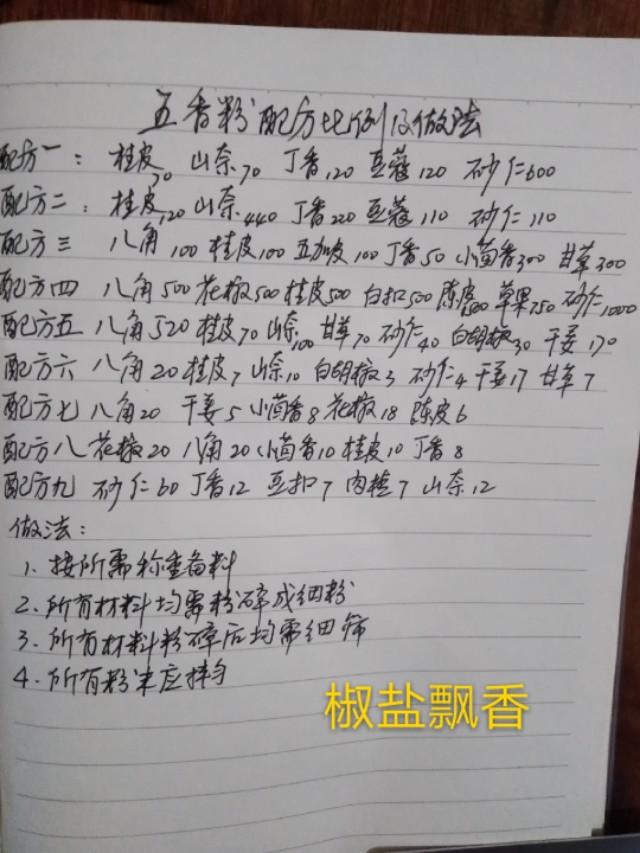 五香粉配方比例及做法
配方一：桂皮70 山奈70 丁香120 豆蔻120 砂仁600
配方二：桂皮120 山奈440 丁香220 豆蔻110 砂仁110
配方三 八角100 桂皮100 五加皮100 丁香50 小茴香300 甘草300
配方四 八角500 花椒500 桂皮500 白扣500 陈皮500 草果750 砂仁1000
配方五 八角520 桂皮70 山奈100 甘草70 砂仁40 白胡椒30 干姜170
配方六 八角20 桂皮7 山奈10 白胡椒3 砂仁4 干姜17 甘草7
配方七 八角20 干姜5 小茴香8 花椒18 陈皮6
配方八 花椒20 八角20 小茴香10 桂皮10 丁香8
配方九 砂仁60 丁香12 豆扣7 肉桂7 山奈12
做法：
1、按所需称重备料
2、所有材料均需粉碎成细粉
3、所有材料粉碎后均需细筛
4、所有粉末应拌匀
椒盐飘香